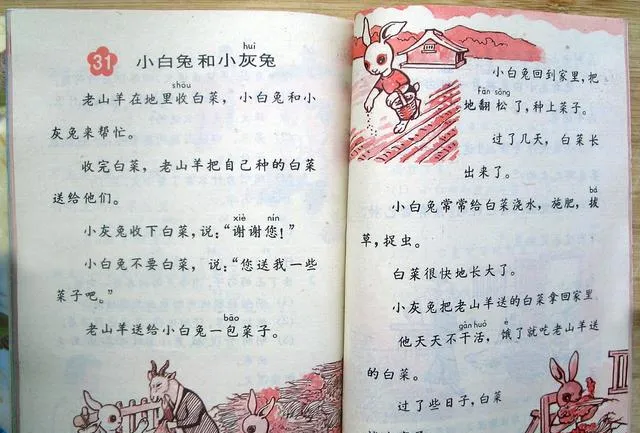 31
huī
小白兔和小灰兔
shōu
老山羊在地里收白菜，小白兔和小
灰兔来帮忙。
收完白菜，老山羊把自己种的白菜
送给他们。
xiè nín
小灰兔收下白菜，说：“谢谢您！”
小白兔不要白菜，说：“您送我一些
菜子吧。”
bāo
老山羊送给小白兔一包菜子。
小白兔回到家里，把
fān sōng
地翻松了，种上菜子。
过了几天，白菜长
出来了。
bá
小白兔常常给白菜浇水，施肥，拔
草，捉虫。
白菜很快地长大了。
小灰兔把老山羊送的白菜拿回家里
gàn huó è
他天天不干活，饿了就吃老山羊送
的白菜。
过了些日子，白菜